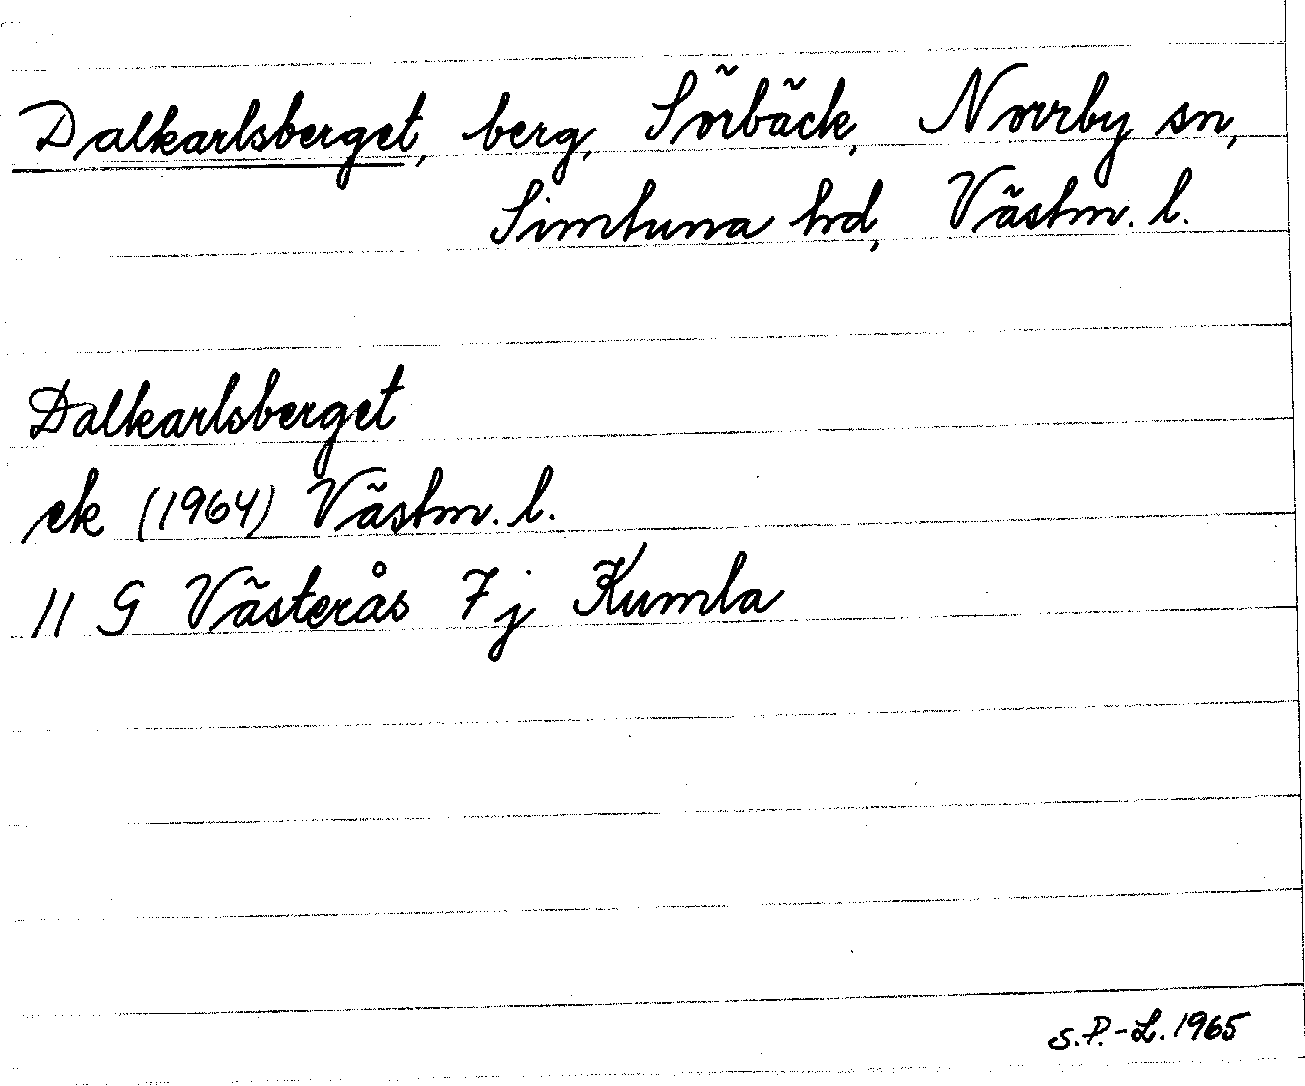 Dalkarlsberget, berg, Sörbäck, Norrby sn,
Simtuna hd, Västm. l.
Dalkarlsberget
ek (1964) Västm. l.
11 G Västerås 7 j Kumla
S.P.-L. 1965